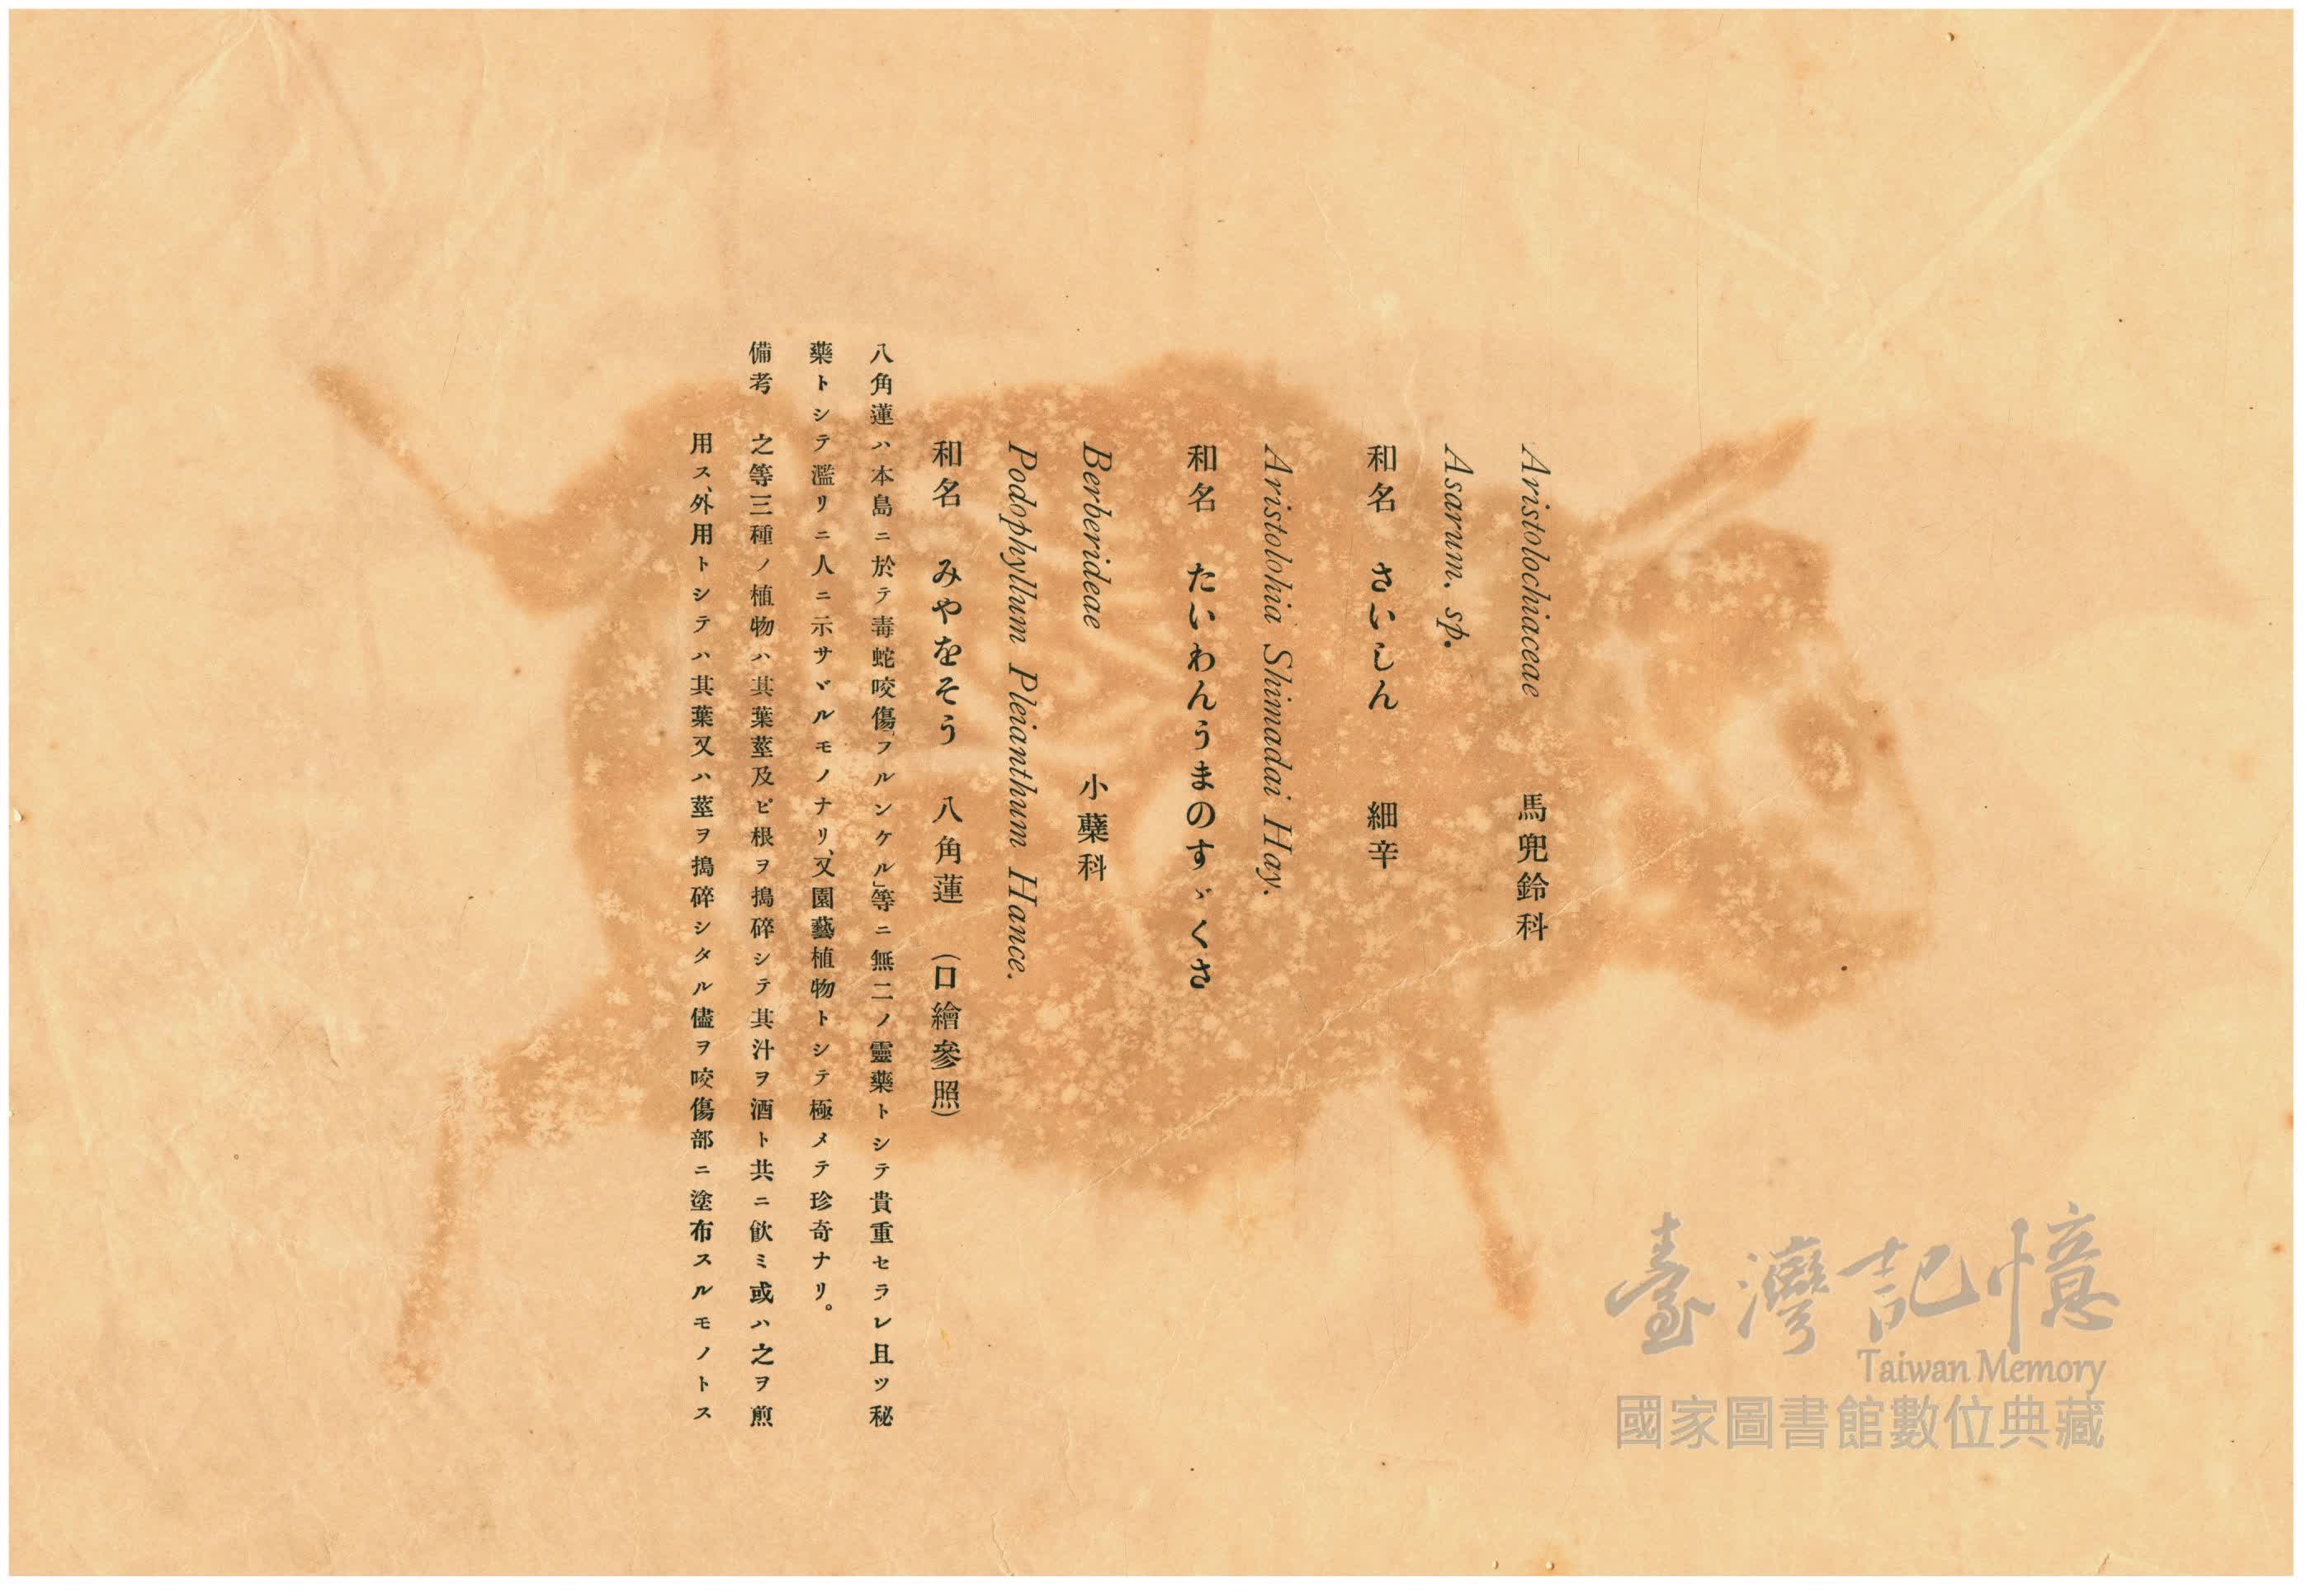 Aristolochiaceae 馬兜鈴科
Asarum. sp.
和名 さいしん 細辛
Aristolohia Shimadai Hay.
和名 たいわんうまのすゞくさ
Berberideae 小蘗科
Podophyllum Pleianthum Hance.
和名 みやをそう 八角蓮 (口繪參照)
八角蓮ハ本島ニ於テ毒蛇咬傷「フルンケル」等ニ無二ノ靈藥トシテ貴重セラレ且ツ秘
藥トシテ濫リニ人ニ示サヾルモノナリ、又園藝植物トシテ極メテ珍奇ナリ。
備考 之等三種ノ植物ハ其葉莖及ピ根ヲ搗碎シテ其汁ヲ酒ト共ニ飮ミ或ハ之ヲ煎
用ス、外用トシテハ其葉又ハ莖ヲ搗碎シタル儘ヲ咬傷部ニ塗布スルモノトス
臺灣記憶
Taiwan Memory
國家圖書館數位典藏